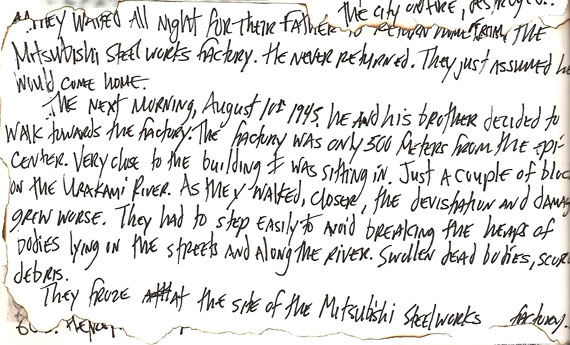 The city on fire,
They waited all night for their father to return home from the
Mitsubishi Steelworks factory. He never returned. They just assumed he
would come home.
The next morning, August 10th 1945. he and his brother decided to
walk towards the factory. The factory was only 500 meters from the epi-
center. Very close to the building I was sitting in. Just a couple of bloc
on the Urakami River. As they walked, closer, the devistation and damag
grew worse. They had to step easily to avoid breaking the heaps of
bodies lying on the streets and along the river. Swollen dead bodies, scor
debris.
They froze at the site of the Mitsubishi Steelworks factory.